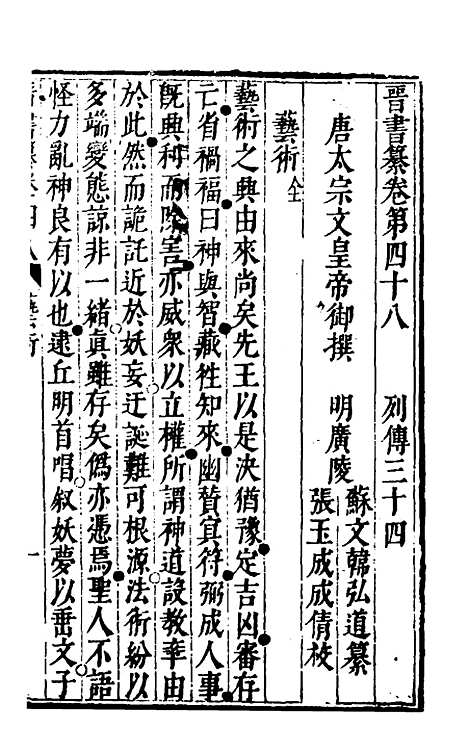 晉書纂卷第四十八　列傳三十四
唐太宗文皇帝御撰　明廣陵
蘇文韓弘道纂
張玉成成倩校
藝術上
藝術之興由來尚矣先王以是決猶豫定吉凶審存
亡省禍福曰神與智藏往知來幽贊冥符弼成人事
旣興利而除害亦威衆以立權所謂神道設教率由
於此然而詭託近於妖妄迂誕難可根源法術紛以
多端變態諒非一緒眞雖存矣僞亦憑焉聖人不語
怪力亂神良有以也逮丘明首唱叙妖夢以垂文子
一